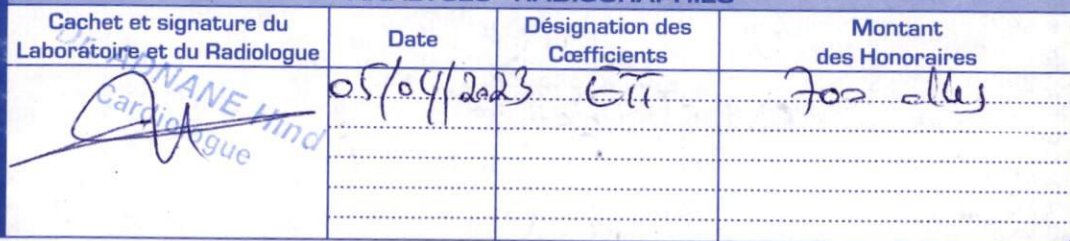 Cachet et signature du
Laboratoire et du Radiologue
Date
Désignation des
Cœfficients
Montant
des Honoraires
Dr ADNANE Hind
Cardiologue
05/04/2023 ETT 700